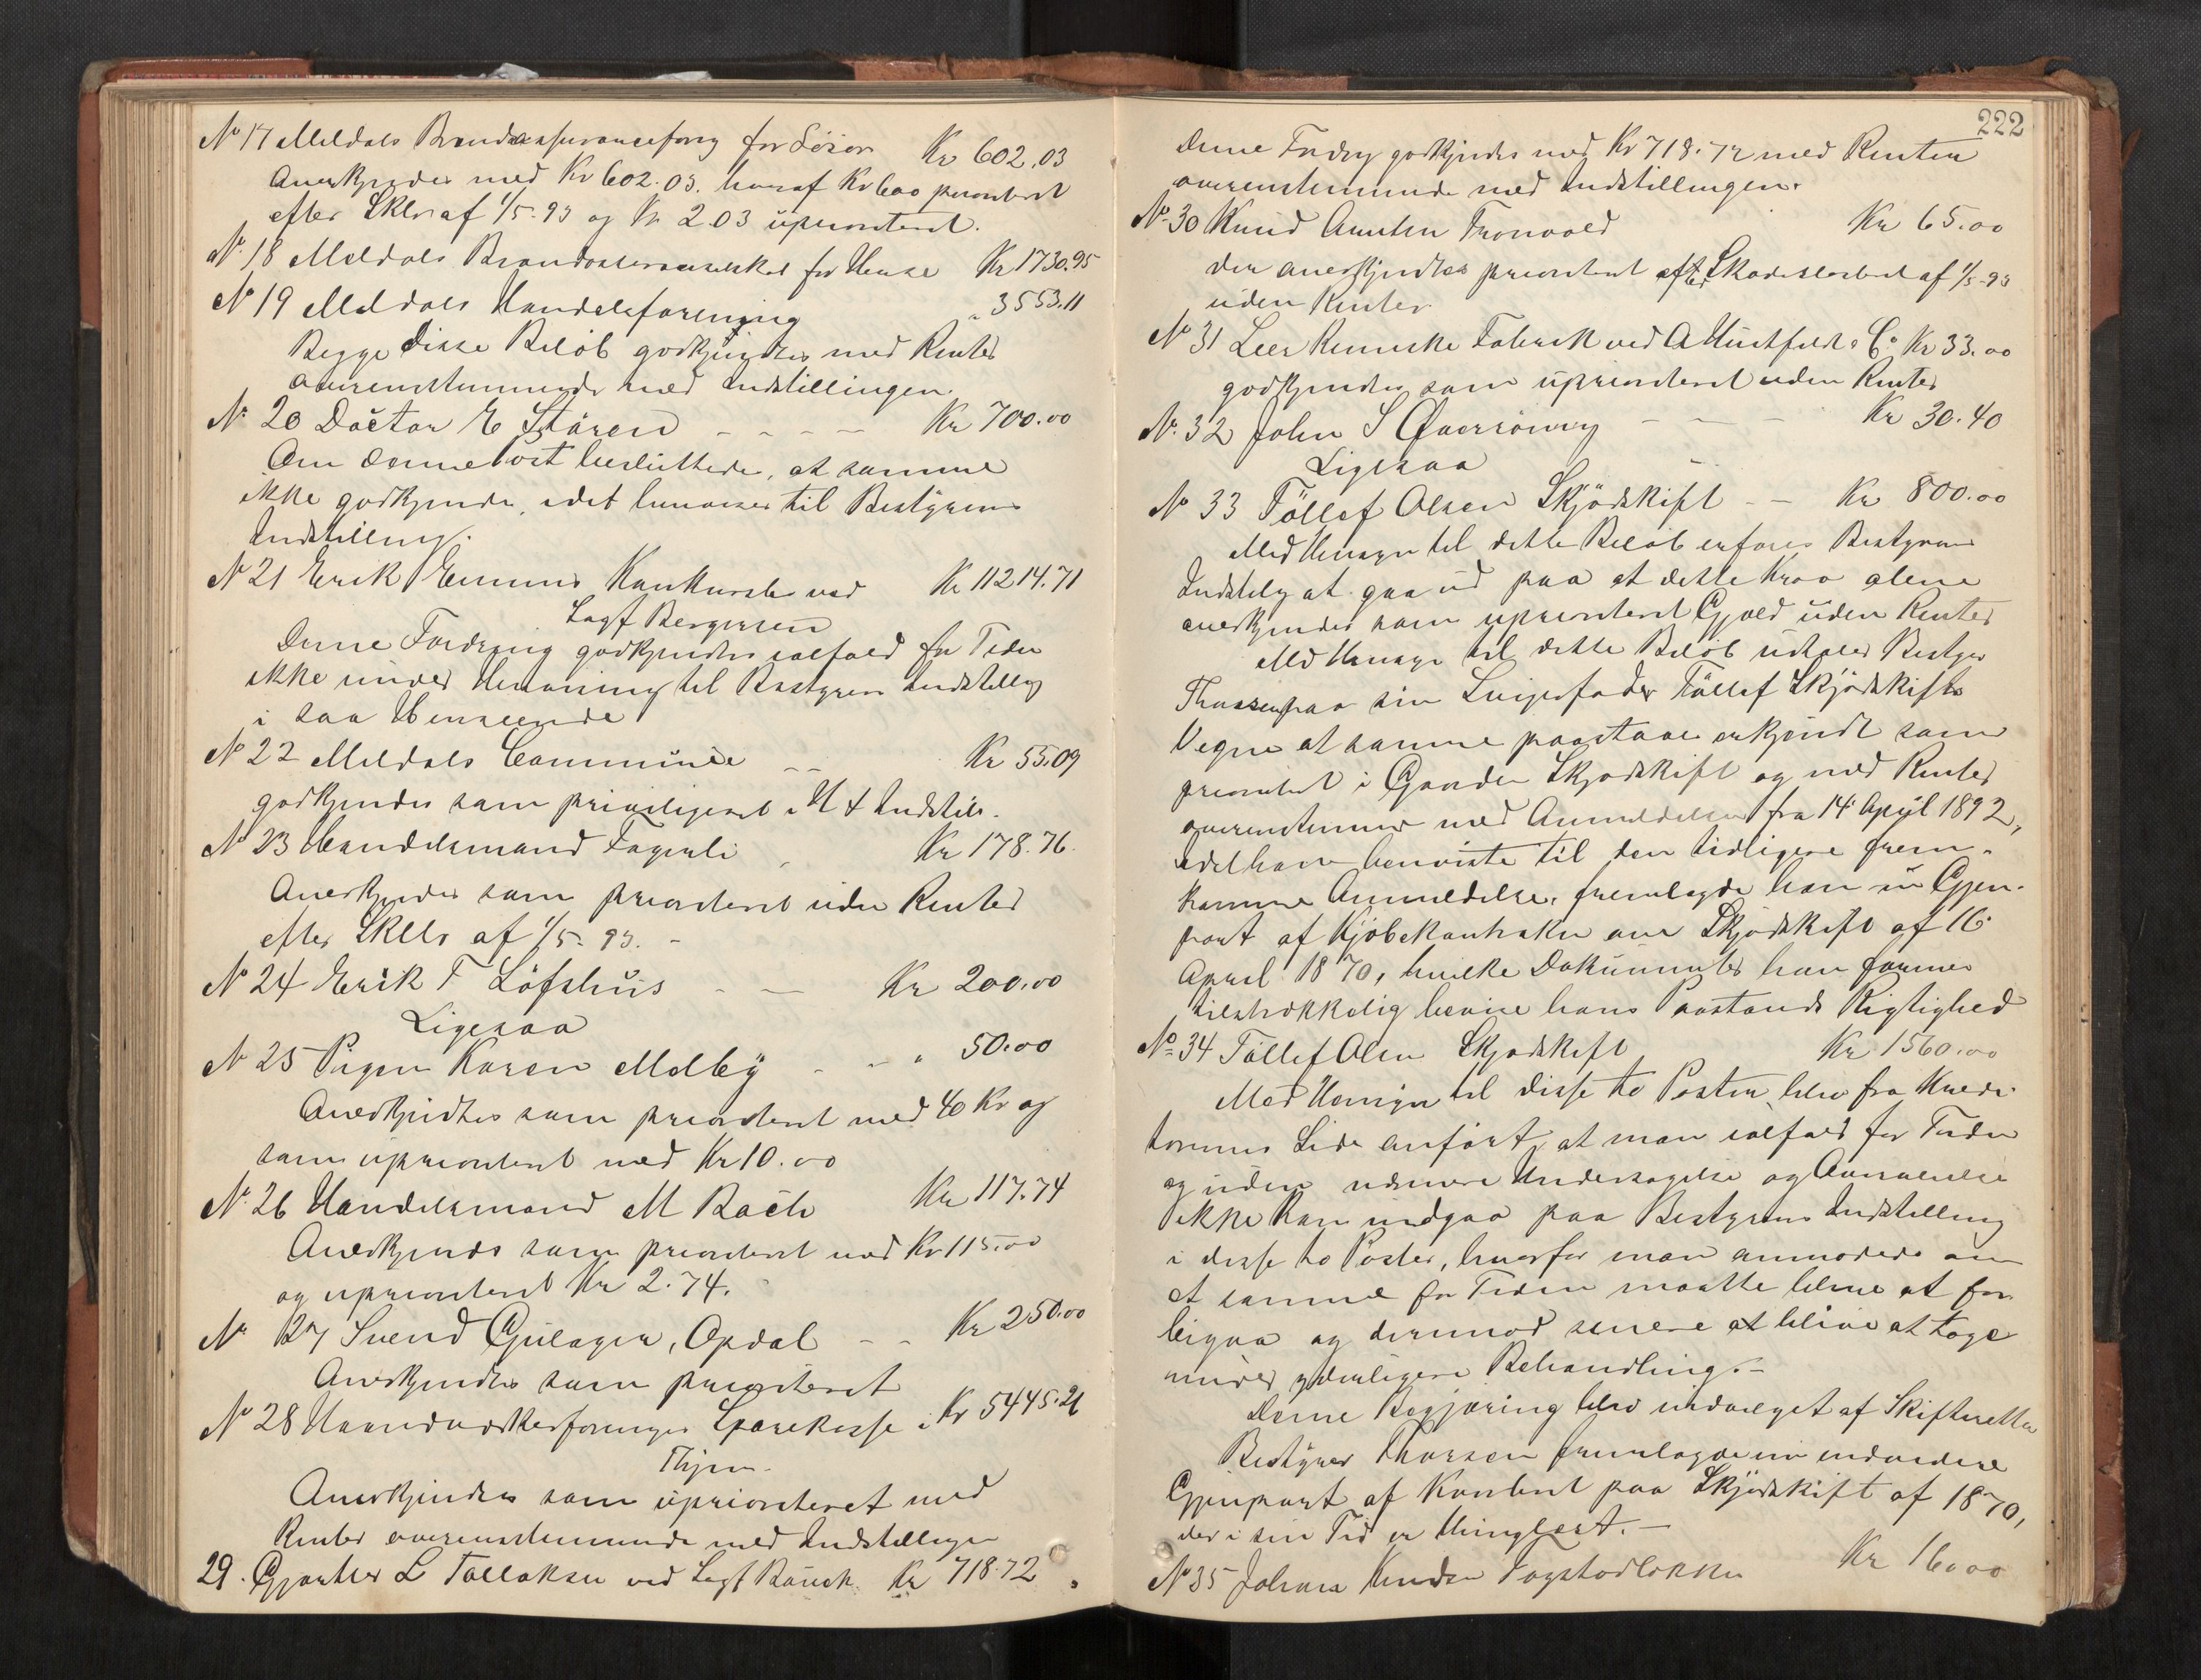 No 17 Meldals Brandassuranceforg for Löser Kr 602.03
Anerkjendes med Kr 602.03. hvoraf Kr 600 prioriteret
efter Skbr af 1/5-93 og Kr 2.03 uprioriteret.
No 18 Meldals Brandassuranceselskab for Huse Kr 1730.95
No 19 Meldals Handelsforening " 3553.11
Begge disse Beløb godkjendtes med Renter
overensstemmende med Indstillingen.
No 20 Doctor E Stören - - - - Kr 700.00
Om denne Post besluttedes, at samme
ikke godkjendes, idet henvises til Bestyrens
Indstilling.
No 21 Erik Kankursbo ved Kr 11214.71
Sagf Bergersen
Denne Fordring godkjendtes ialfald for Tiden
ikke under Henvisning til Bestyrens Indstilling
i saa Henseende
No 22 Meldals Commune - - Kr 55.09
godkjendes som priviligeret i H t Indstil.
No 23 Handelsmand Fagerli Kr 178.76
Anerkjendes som prioriteret uden Renter
efter Skbr af 1/5-93. -
No 24 Erik T Löfshus - - Kr 200.00
Ligesaa
No 25 Pigen Karen Melby - - " 50.00
Anerkjendtes som prioriteret med 40 Kr og
som uprioriteret med Kr 10.00
No 26 Handelsmand M Bach Kr 117.74
Anerkjends som prioriteret med Kr 115.00
og uprioriteret Kr 2.74.
No 27 Svend Gjulager, Opdal - - Kr 250.00
Anerkjendtes som prioriteret
No 28 Haandværkerforeninges Sparekasse i Kr 5445.21
Thjem.
Anerkjendtes som uprioriteret med
Renter overensstemmende med Indstillingen
29. Gjørtler L Tallaksen ved Sagf Bauck Kr 718.72
222
Denne Fordrg godkjendes med Kr 718.72 med Renter
overensstemmende med Indstillingen.
No 30 Knud Amundsen Kr 65.00
der anerkjendtes prioriteret efter Skadesløsbrev af 1/5-93
uden Renter
No 31 Leer Kemiske Fabrik ved A Huitfeldt & Co Kr 33.00
godkjendtes som uprioriteret uden Renter
No 32 John S - - - Kr 30.40
Ligesaa
No 33 Töllef Olsen Skjødskift - - Kr 800.00
Med Hensyn til dette Beløb anføres Bestyrens
Indstillg at gaa ud paa at dette Krav alene
anerkjendes som uprioriteret Gjæld uden Renter
Med Hensyn til dette Beløb udtaler Bestyrer
Thoresen paa sin Svigerfader Töllef Skjødskifts
Vegne at samme paastaaes erkjendt som
prioriteret i Gaarden Skjødskift og med Renter
overensstemmer med Anmeldelsen fra 14 April 1892,
idet han henviste til den tidligere frem-
komne Anmeldelse, fremlagde han en Gjen-
part af Kjøbekontrakten om Skjødskift af 16
April 1870, hvilke Dokumenter han formener
tilstrækkelig bevise hans Paastands Rigtighed
No 34 Töllef Olsen Skjødskift Kr 1560.00
Med Hensyn til disse to Poster blev fra Kredi-
torernes Side anført, at man ialfald for Tiden
og uden nærmere Undersøgelse og
ikke kan indgaa paa Bestyrens Indstilling
i disse to Poster, hvorfor man anmodede om
at samme for Tiden maatte blive at for-
bigaa og derimod senere at blive at tage
under yderligere Behandling. -
Denne Begjæring blev indvilget af Skifteretten
Bestyrer Thoresen fremlagde nu endvidere
Gjenpart af Kontrakt paa Skjødskift af 1870,
der i sin Tid er thinglæst. -
No 35 Johan Knudsen Kr 16.00